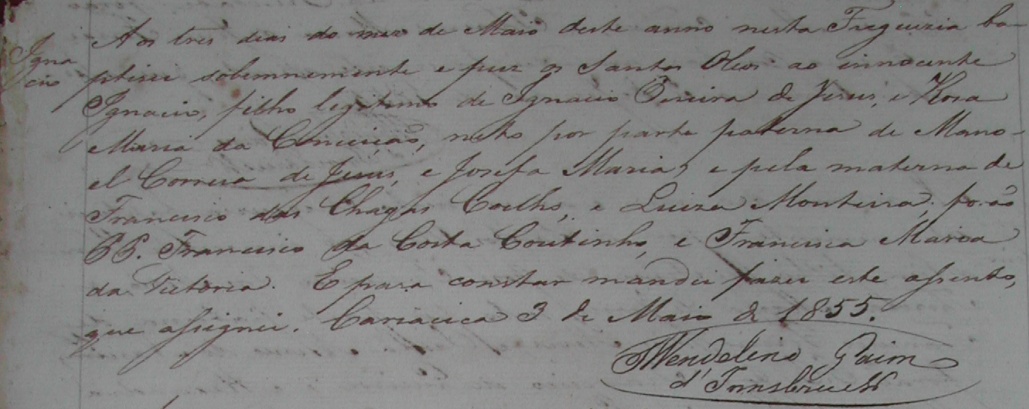 Igna
cio
Aos tres dias do mez de Maio deste anno nesta Freguezia ba-
ptizei solemnemente e puz os Santos Oleos ao innocente
Ignacio, filho legitimo de Ignacio Pereira de Jesus, e Roza
Maria da Conceicão, neto por parte paterna de Mano-
el Correia de Jesus, e Josefa Maria, e pela materna de
Francisco das Chagas Coelho, e Luiza Monteira, forão
PP. Francisco da Costa Coutinho, e Francisca Maria
da Victoria. E para constar mandei fazer este assento,
que assignei. Cariacica 3 de Maio de 1855.
Wendelino
d'Innsbruck